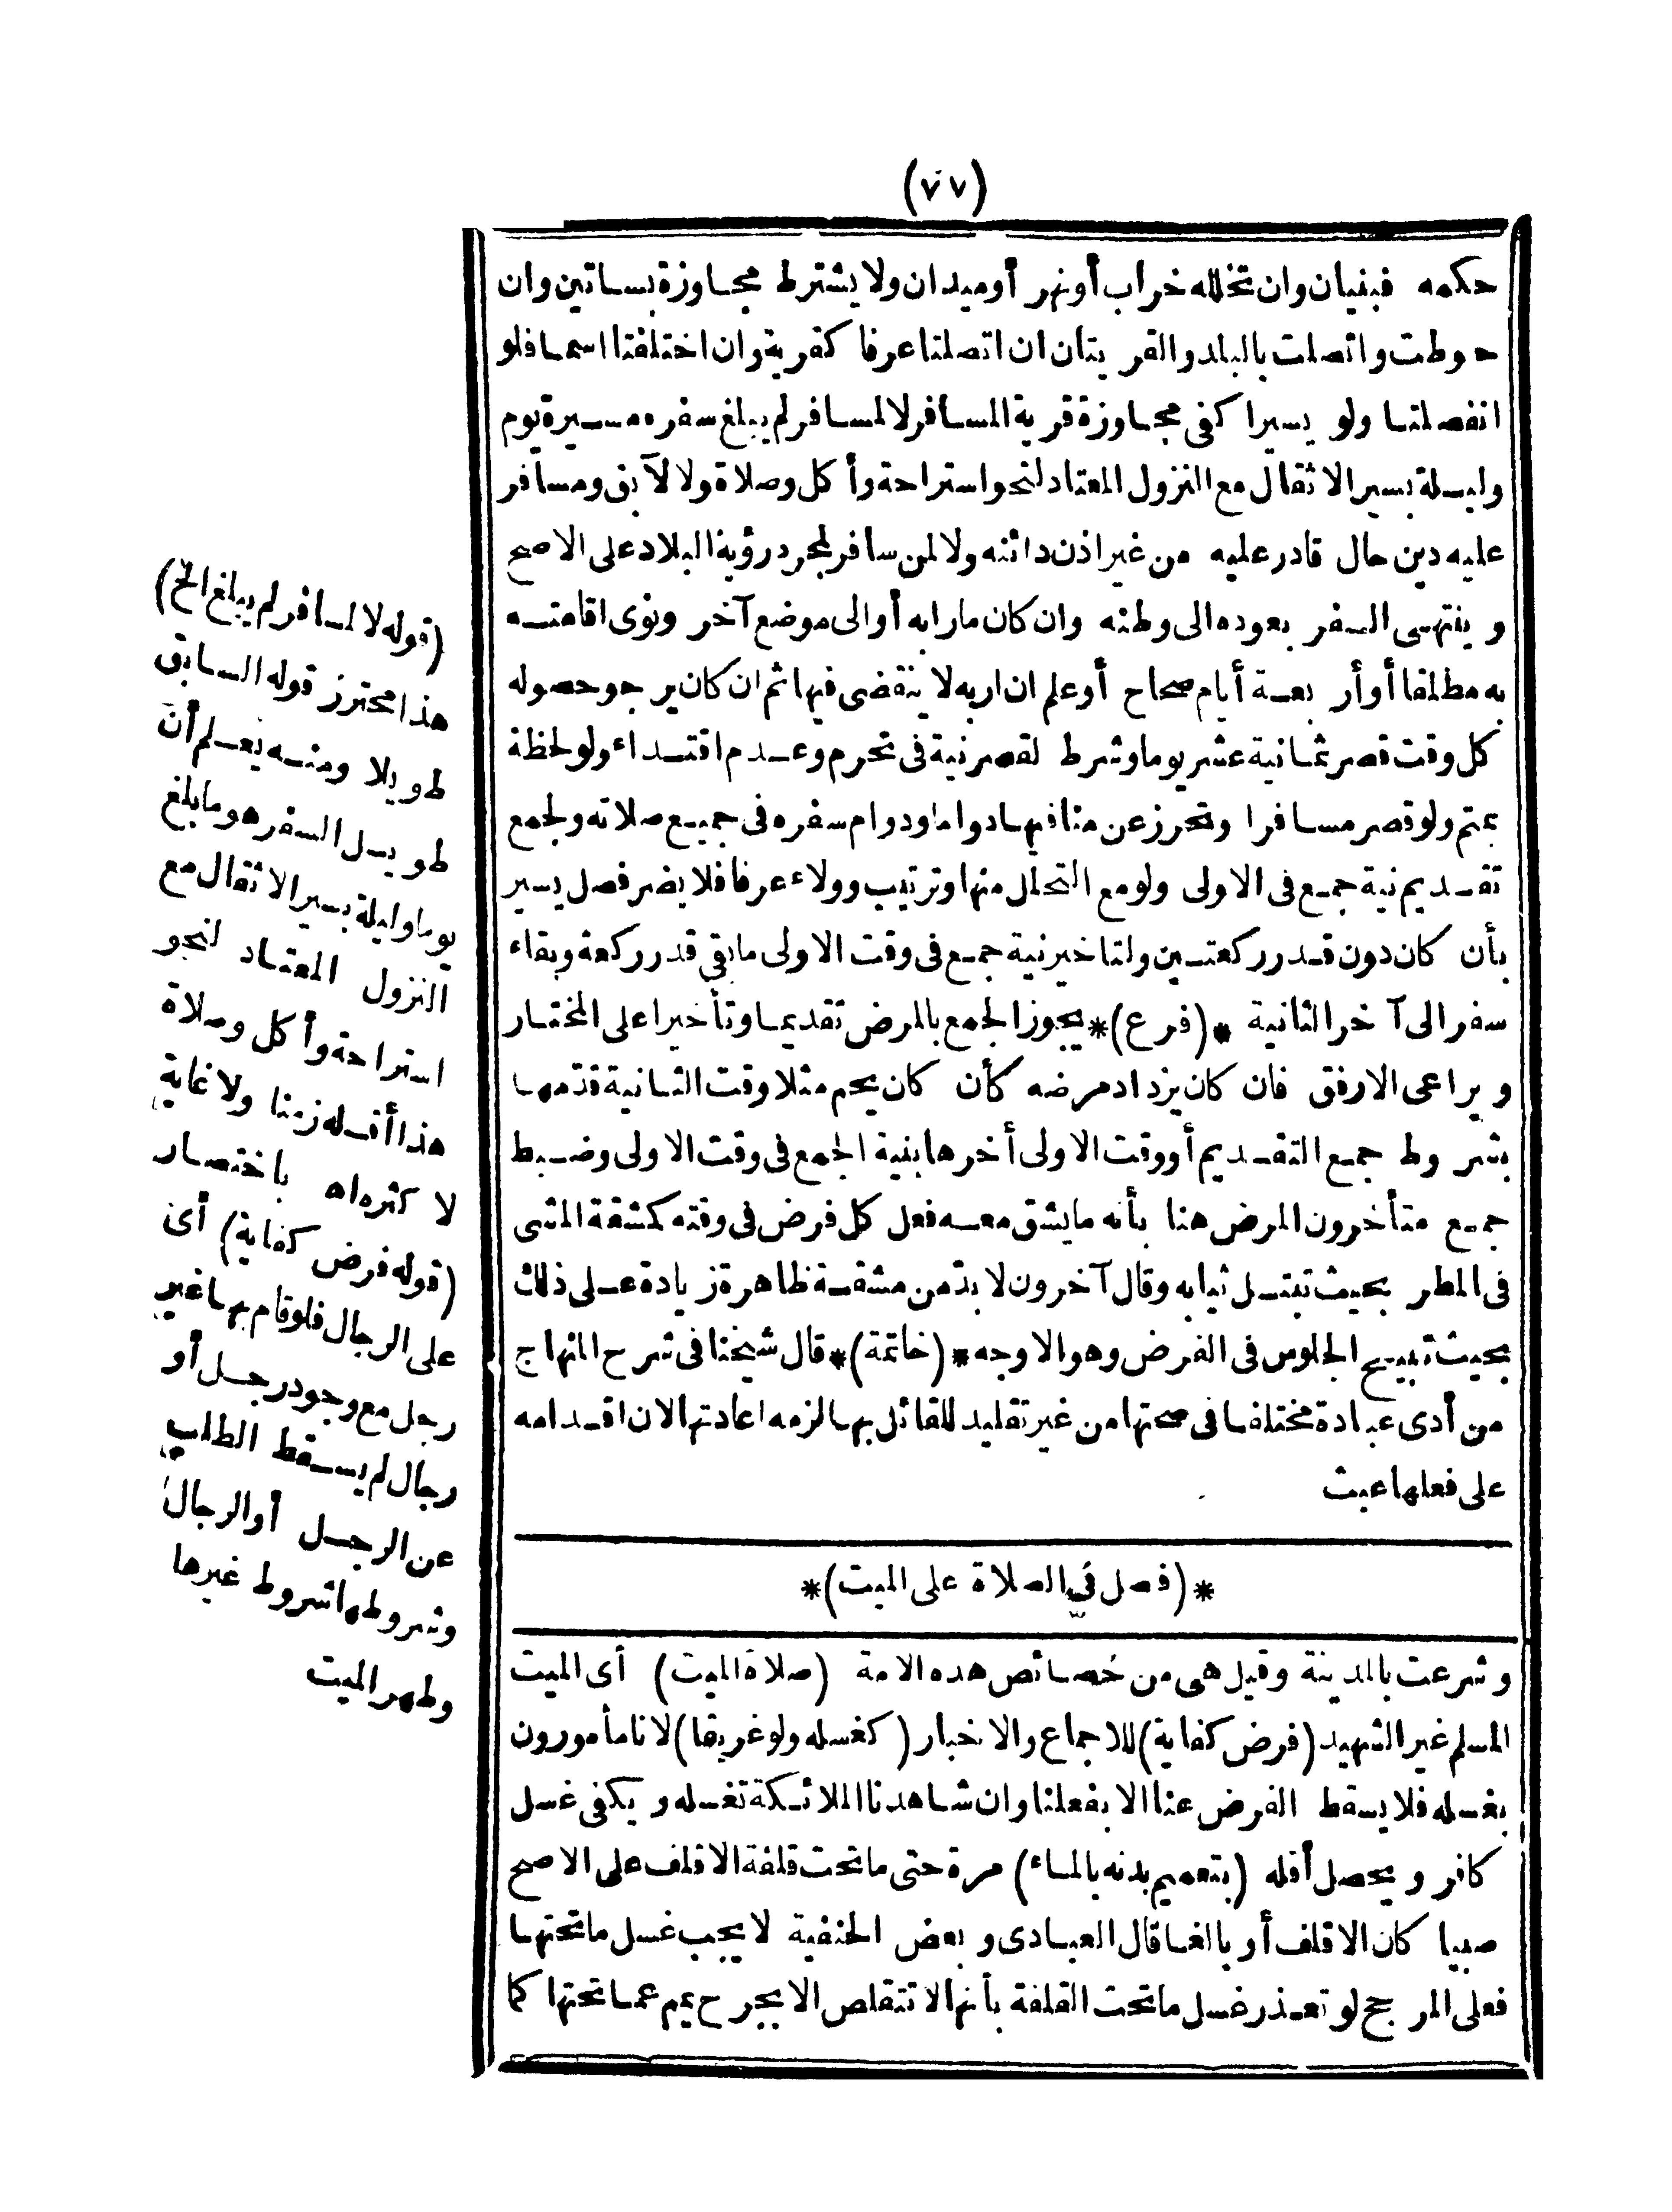 (٧٧)
حكمه فبنيان وان تخلله خراب أو نهر أو ميدان ولا يشترط مجاوزة بساتين وان
حوطت واتصلت بالبلد والقريتان ان اتصلتا عرفا كقرية وان اختلفتا اسما فلو
انفصلتا ولو يسيرا كفى مجاوزة قرية المسافر لا لمسافر لم يبلغ سفره مسيرة يوم
وليلة بسير الاثقال مع النزول المعتاد لنحو استراحة وأكل وصلاة ولا لآبق ومسافر
عليه دين حال قادر عليه من غير اذن دائنه ولا لمن سافر لمجرد رؤية البلاد على الاصح
وينتهى السفر بعوده الى وطنه وان كان مارا به أو الى موضع آخر ونوى اقامته
به مطلقا أو أربعة أيام صحاح أو علم ان اربه لا ينقضى فيها ثم ان كان يرجو حصوله
كل وقت قصر ثمانية عشر يوما وشرط لقصر نية فى تحرم وعدم اقتداء ولو لحظة
بمتم ولو قصر مسافرا وتحرز عن منافيها دواما ودوام سفره فى جميع صلاته ولجمع
تقديم نية جمع فى الاولى ولو مع التحلل منها وترتيب وولاء عرفا فلا يضر فصل يسير
بأن كان دون قدر ركعتين ولتاخير نية جمع فى وقت الاولى ما بقى قدر ركعة وبقاء
سفر الى آخر الثانية *(فرع)* يجوز الجمع بالمرض تقديما وتأخيرا على المختار
ويراعى الارفق فان كان يزداد مرضه كأن كان يحم مثلا وقت الثانية قدّمها
بشروط جمع التقديم أو وقت الاولى أخرها بنية الجمع فى وقت الاولى وضبط
جمع متأخرون المرض هنا بأنه ما يشق معه فعل كل فرض فى وقته كمشقة المشى
فى المطر بحيث تبتل ثيابه وقال آخرون لا بدّ من مشقة ظاهرة زيادة على ذلك
بحيث تبيح الجلوس فى الفرض وهو الاوجه *(خاتمة)* قال شيخنا فى شرح المنهاج
من أدى عبادة مختلفا فى صحتها من غير تقليد للقائل بها لزمه اعادتها لان اقدامه
على فعلها عبث
*(فصل في الصلاة على الميت)*
وشرعت بالمدينة وقيل هى من خصائص هده الامة (صلاة الميت) أى الميت
المسلم غير الشهيد (فرض كفاية) للاجماع والاخبار (كغسله ولو غريقا) لانا مأمورون
بغسله فلا يسقط الفرض عنا الا بفعلنا وان شاهدنا الملائكة تغسله ويكفى غسل
كافر ويحصل أقله (بتعميم بدنه بالماء) مرة حتى ما تحت قلفة الاقلف على الاصح
صبيا كان الاقلف أو بالغا قال العبادى وبعض الحنفية لا يجب غسل ما تحتها
فعلى المرجح لو تعذر غسل ما تحت القلفة بأنها لا تتقلص الا بجرح يمم عما تحتها كما
(قوله لا لمسافر لم يبلغ الخ)
هذا محترز قوله السابق
طويلا ومنه يعلم أن
طويل السفر هو ما بلغ
يوما وليلة بسير الاثقال مع
النزول المعتاد لنحو
استراحة وأكل وصلاة
هذا أقله زمنا ولا غاية
لا كثره اه باختصار
(قوله فرض كفاية) أى
على الرجال فلو قام بها غير
رجل مع وجود رجل أو
رجال لم يسقط الطلب
عن الرجل أو الرجال
وشروطها شروط غيرها
وطهر الميت